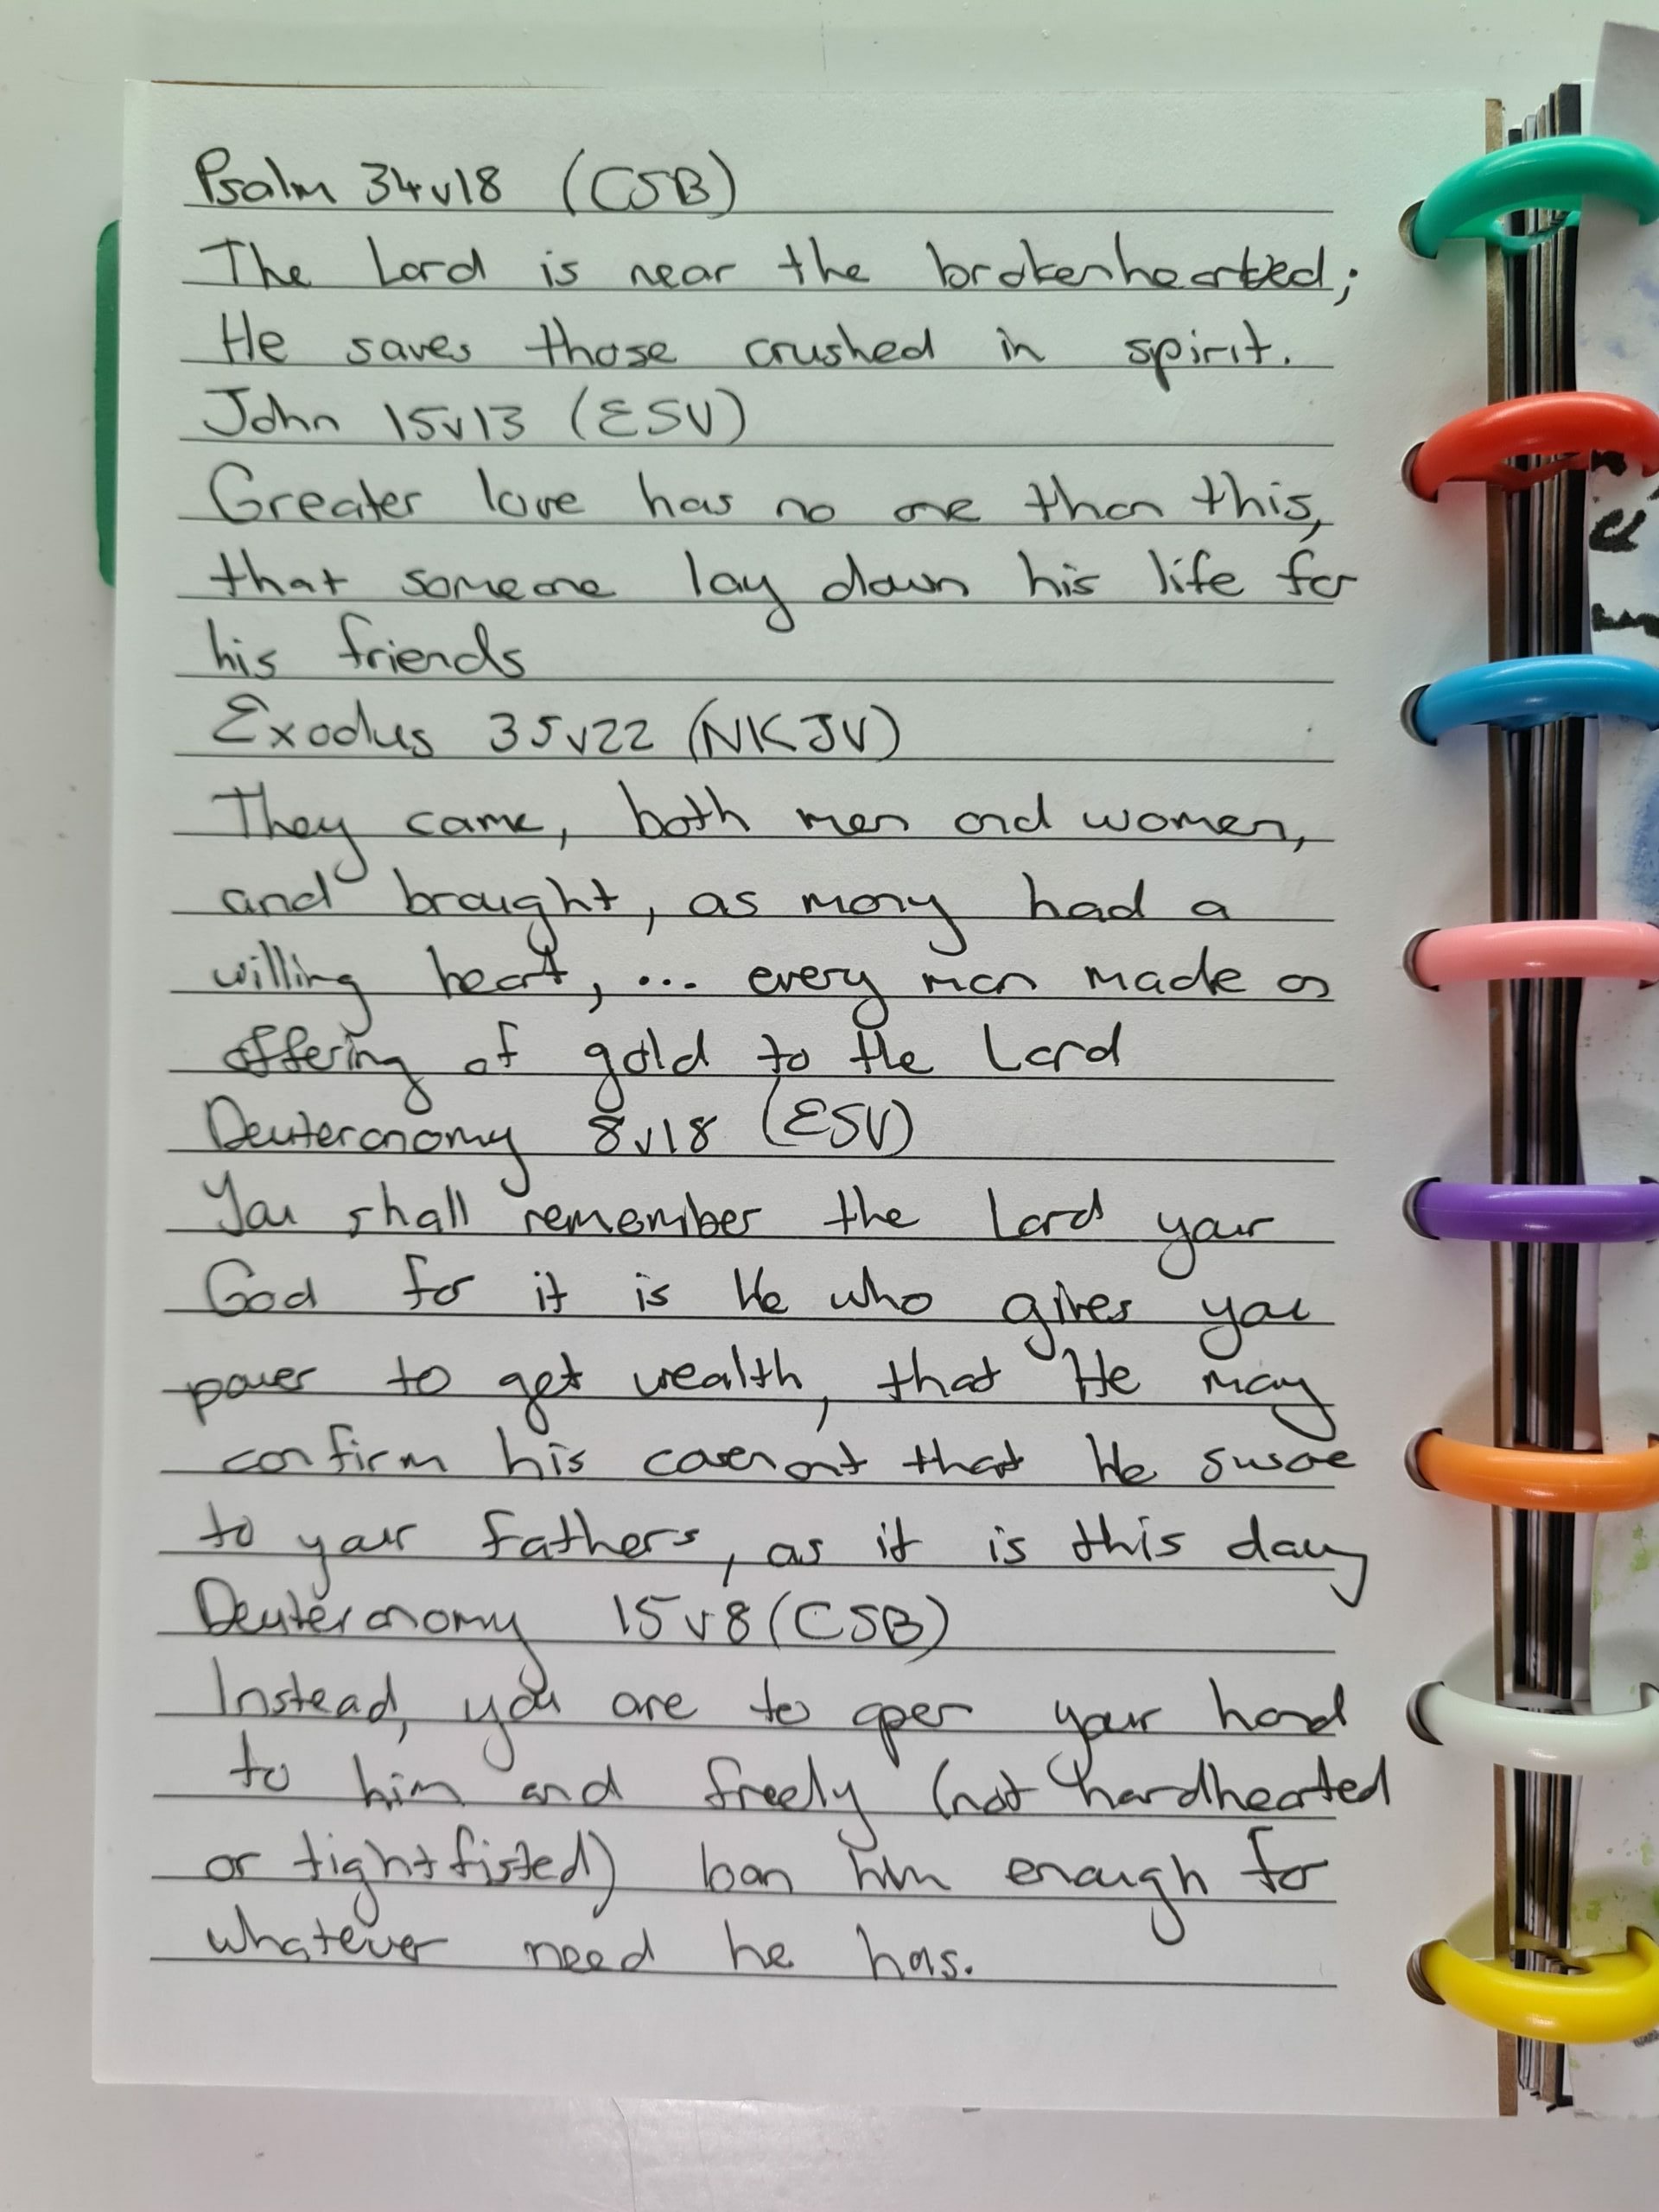 Psalm 34v18 (CSB)
The Lord is near the brokenhearted;
He saves those crushed in spirit.
John 15v13 (ESV)
Greater love has no one than this,
that someone lay down his life for
his friends
Exodus 35v22 (NKJV)
They came, both men and women,
and brought, as many had a
willing heart, ... every man made an
offering of gold to the Lord
Deuteronomy 8v18 (ESV)
You shall remember the Lord your
God for it is He who gives you
power to get wealth, that He may
confirm his covenant that He swore
to your fathers, as it is this day
Deuteronomy 15v8 (CSB)
Instead, you are to open your hand
to him and freely (not hardhearted
or tightfisted) loan him enough for
whatever need he has.